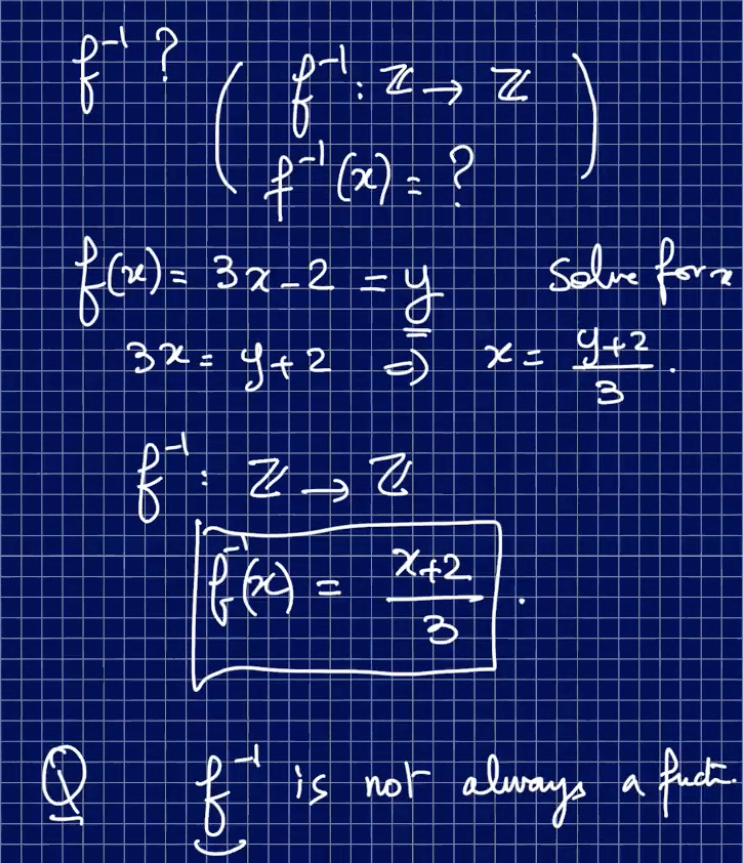 f⁻¹ ?
( f⁻¹ : ℤ → ℤ
f⁻¹(x) = ? )
f(x) = 3x - 2 = y Solve for x
3x = y + 2 ⇒ x = (y+2)/3 .
f⁻¹ : ℤ → ℤ
f⁻¹(x) = (x+2)/3 .
Q f⁻¹ is not always a fuct.